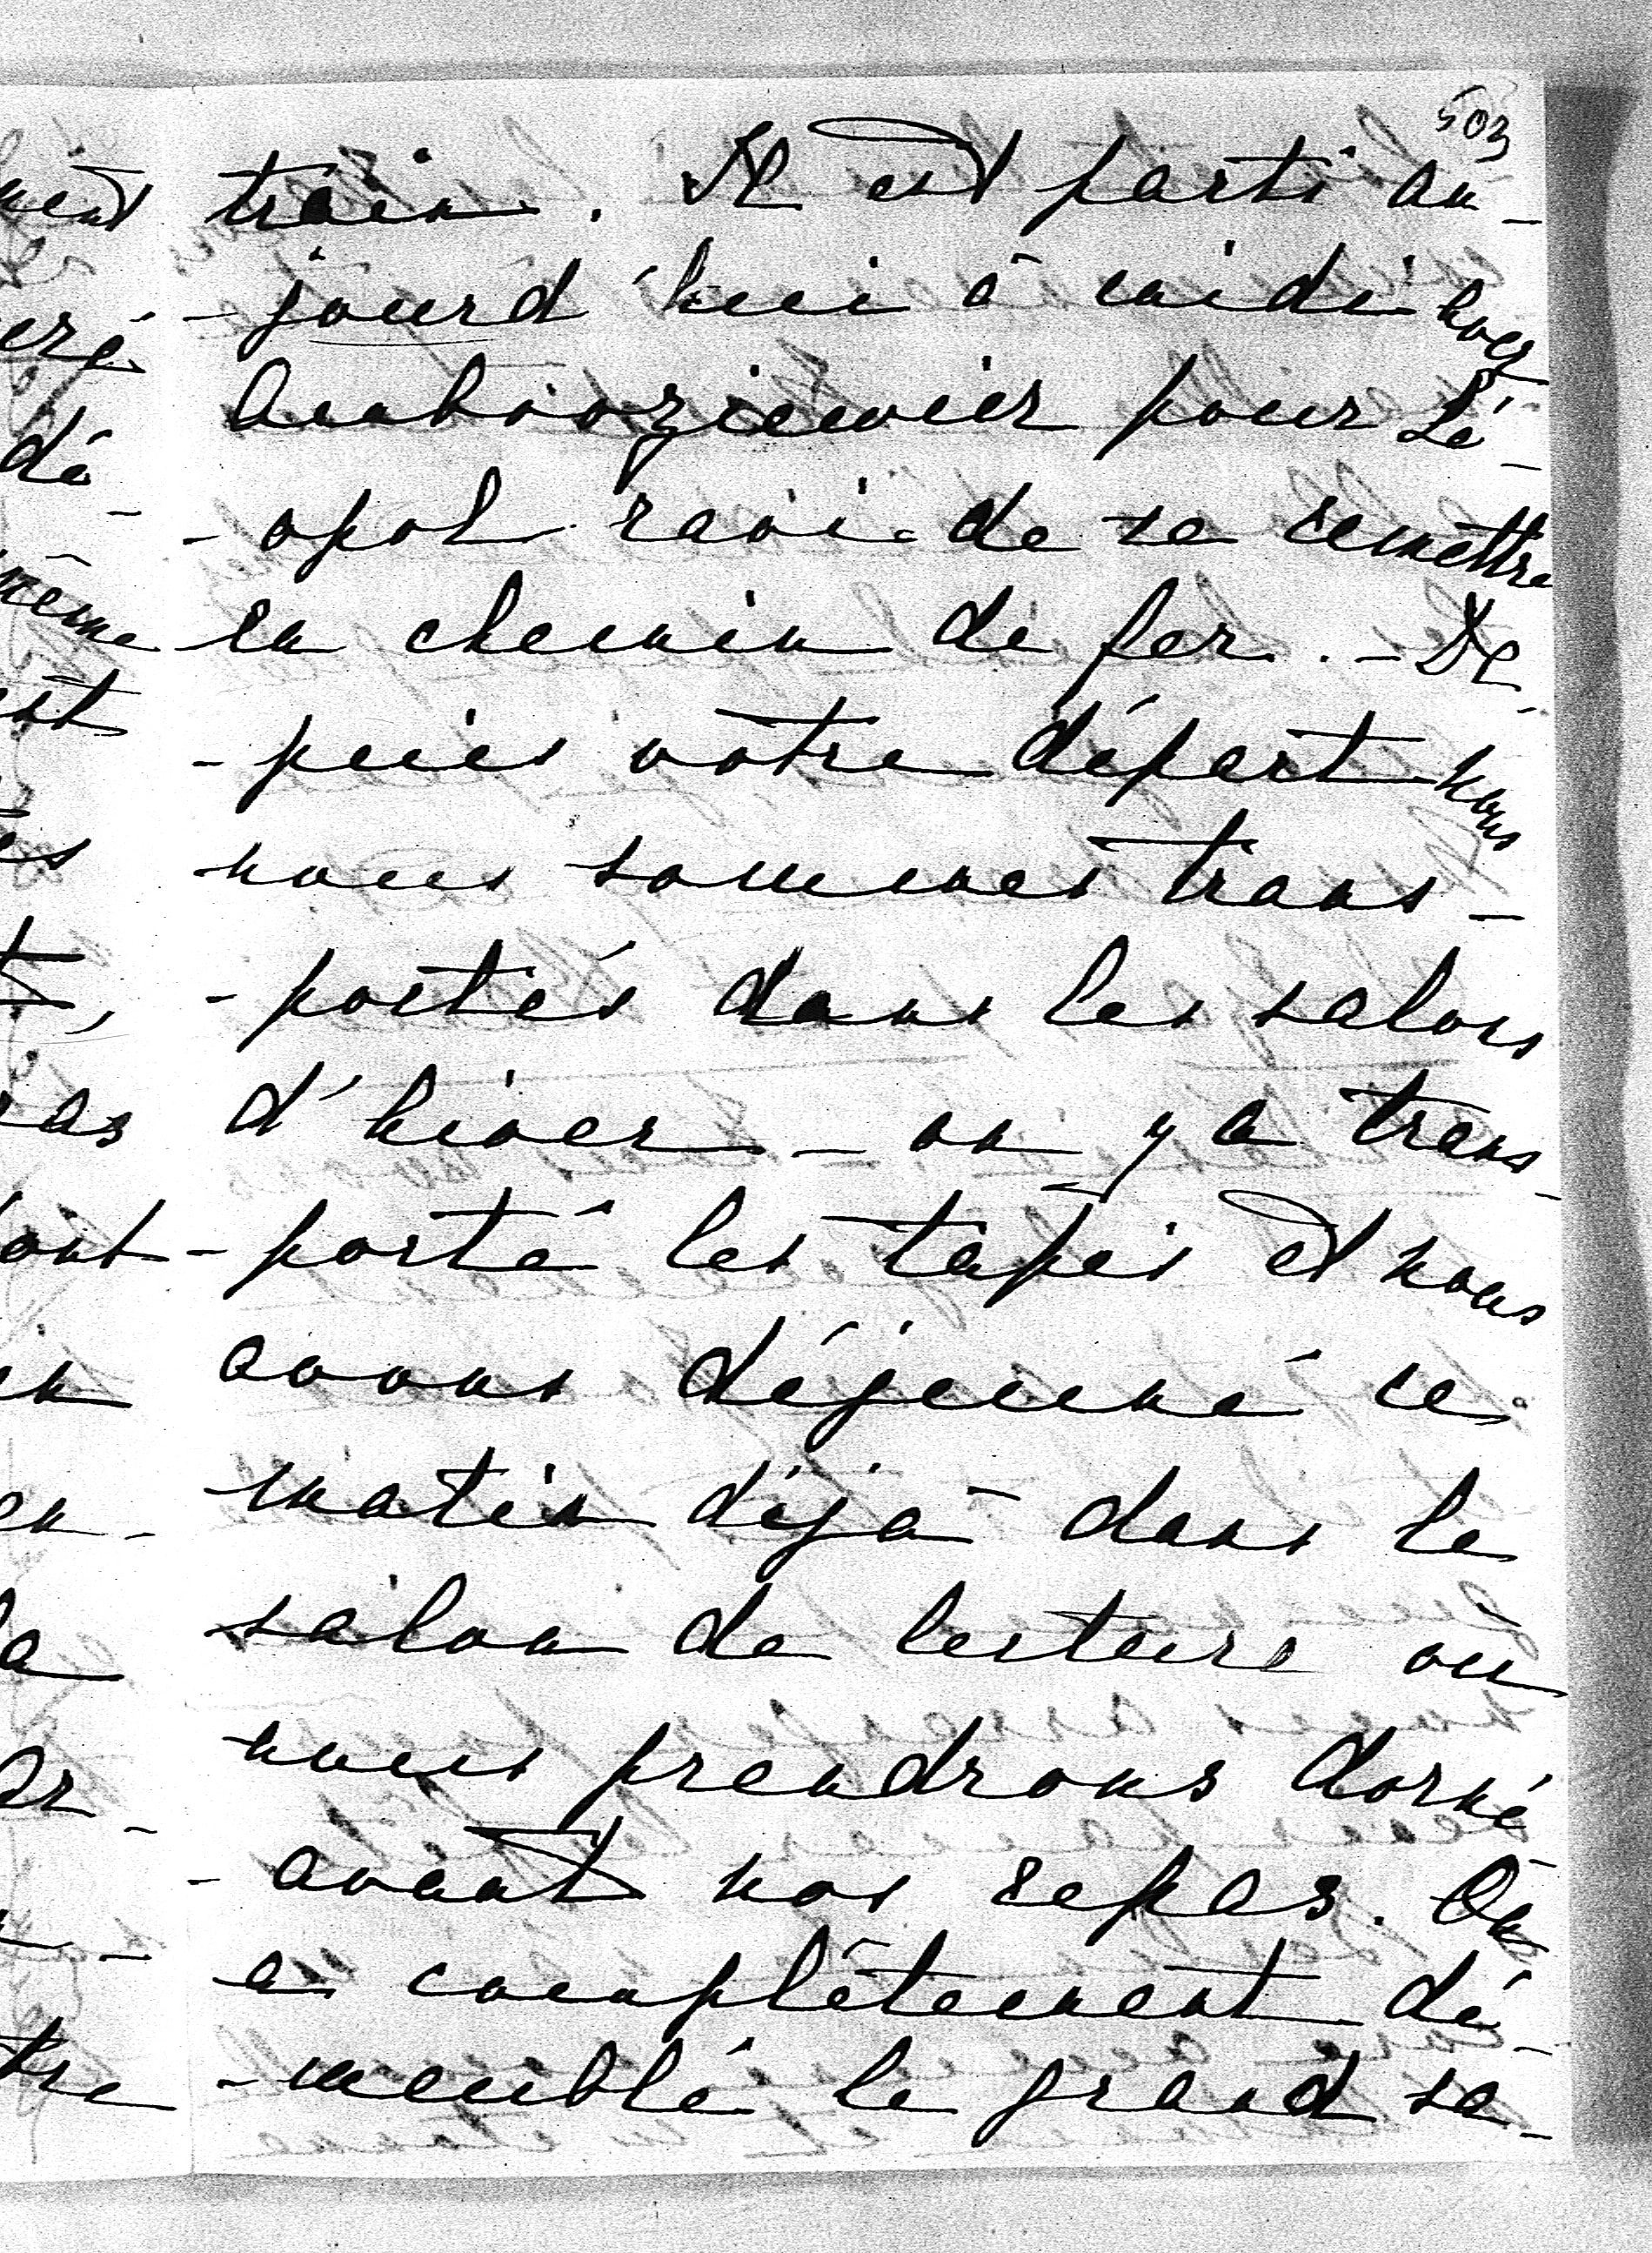 503
train. Il est parti au-
-jourd'hui à midi avec
pour Lé-
-opol ravi de se remettre
en chemin de fer. - De-
-puis votre départ nous
nous sommes trans-
-portés dans les salons
d'hiver - on y a trans-
-porté les tapis et nous
avons déjeuné ce
matin déjà dans le
salon de lecture où
nous prendrons doré-
-avant nos repas. On
a complètement dé-
-meublé le grand sa-